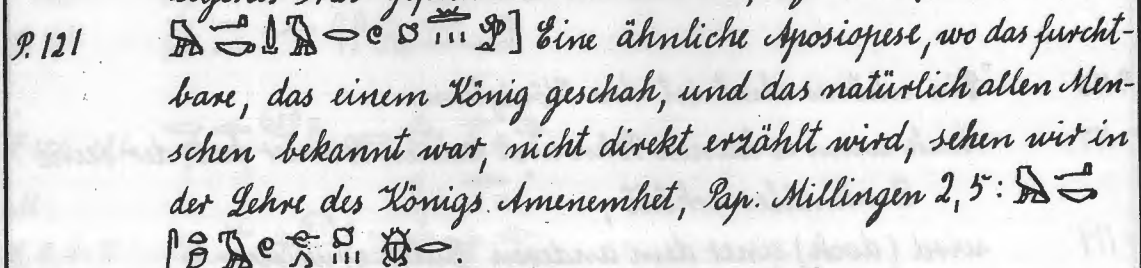 P. 121 ] Eine ähnliche Aposiopese, wo das furcht-
bare, das einem König geschah, und das natürlich allen Men-
schen bekannt war, nicht direkt erzählt wird, sehen wir in
der Lehre des Königs Amenemhet, Pap. Millingen 2,5: